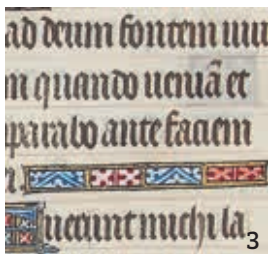 ad deum fontem uiu
m quando ueniã et
parabo ante faciem
i.
Fuerunt michi la
3